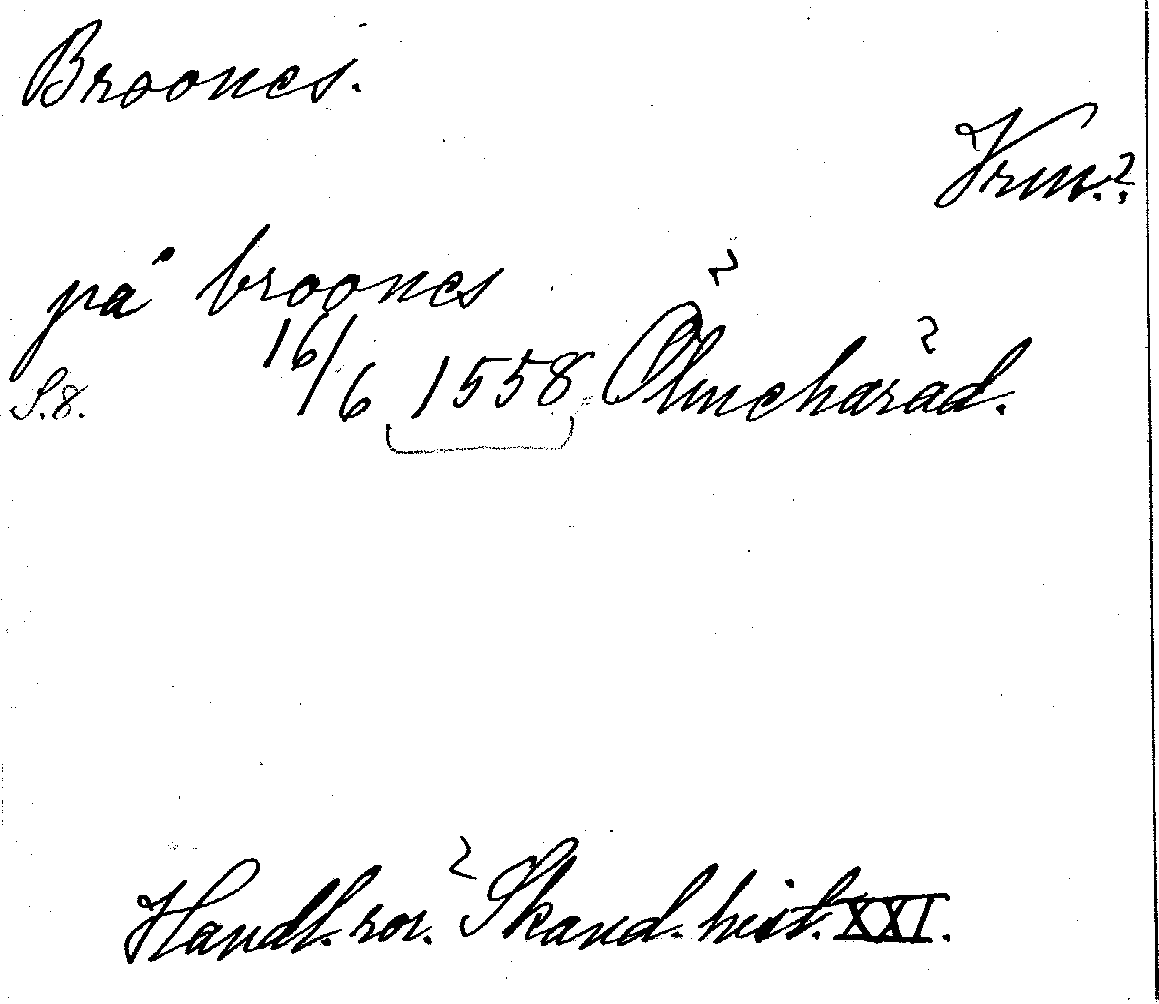 Broones.
Vrm.?
på broones
16/6 1558 Ölmehärad.
S.8.
Handl. rör. Skand. hist. XXI.